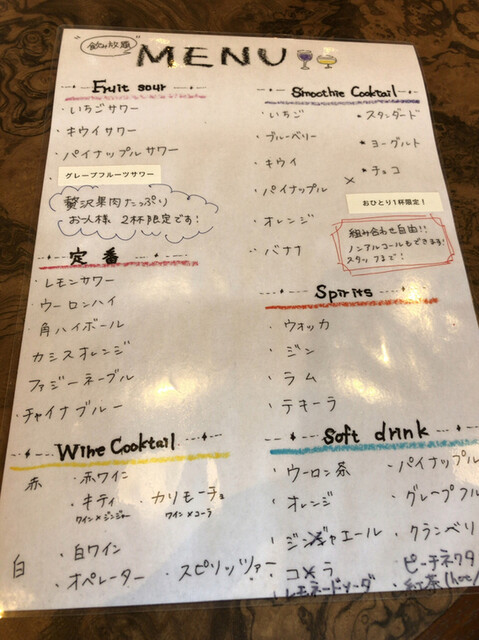 飲み放題
MENU
Fruit sour
・いちごサワー
・キウイサワー
・パイナップルサワー
グレープフルーツサワー
贅沢果肉たっぷり
お1人様 2杯限定です!
定番
・レモンサワー
・ウーロンハイ
・角ハイボール
・カシスオレンジ
・ファジーネーブル
・チャイナブルー
Wine Cocktail
赤
・赤ワイン
・キティ
ワイン×ジンジャー
・カリモーチョ
ワイン×コーラ
白
・白ワイン
・オペレーター
・スピリッツァー
Smoothie Cocktail
・いちご
・ブルーベリー
・キウイ
・パイナップル
・オレンジ
・バナナ
×
★スタンダード
★ヨーグルト
★チョコ
おひとり1杯限定!
組み合わせ自由!!
ノンアルコールもできます!
スタッフまで!
Spirits
・ウォッカ
・ジン
・ラム
・テキーラ
Soft drink
・ウーロン茶
・オレンジ
・ジンジャエール
・コーラ
・レモネードソーダ
・パイナップル
・グレープフル
・クランベリ
・ピーチネクタ
・紅茶(hot/